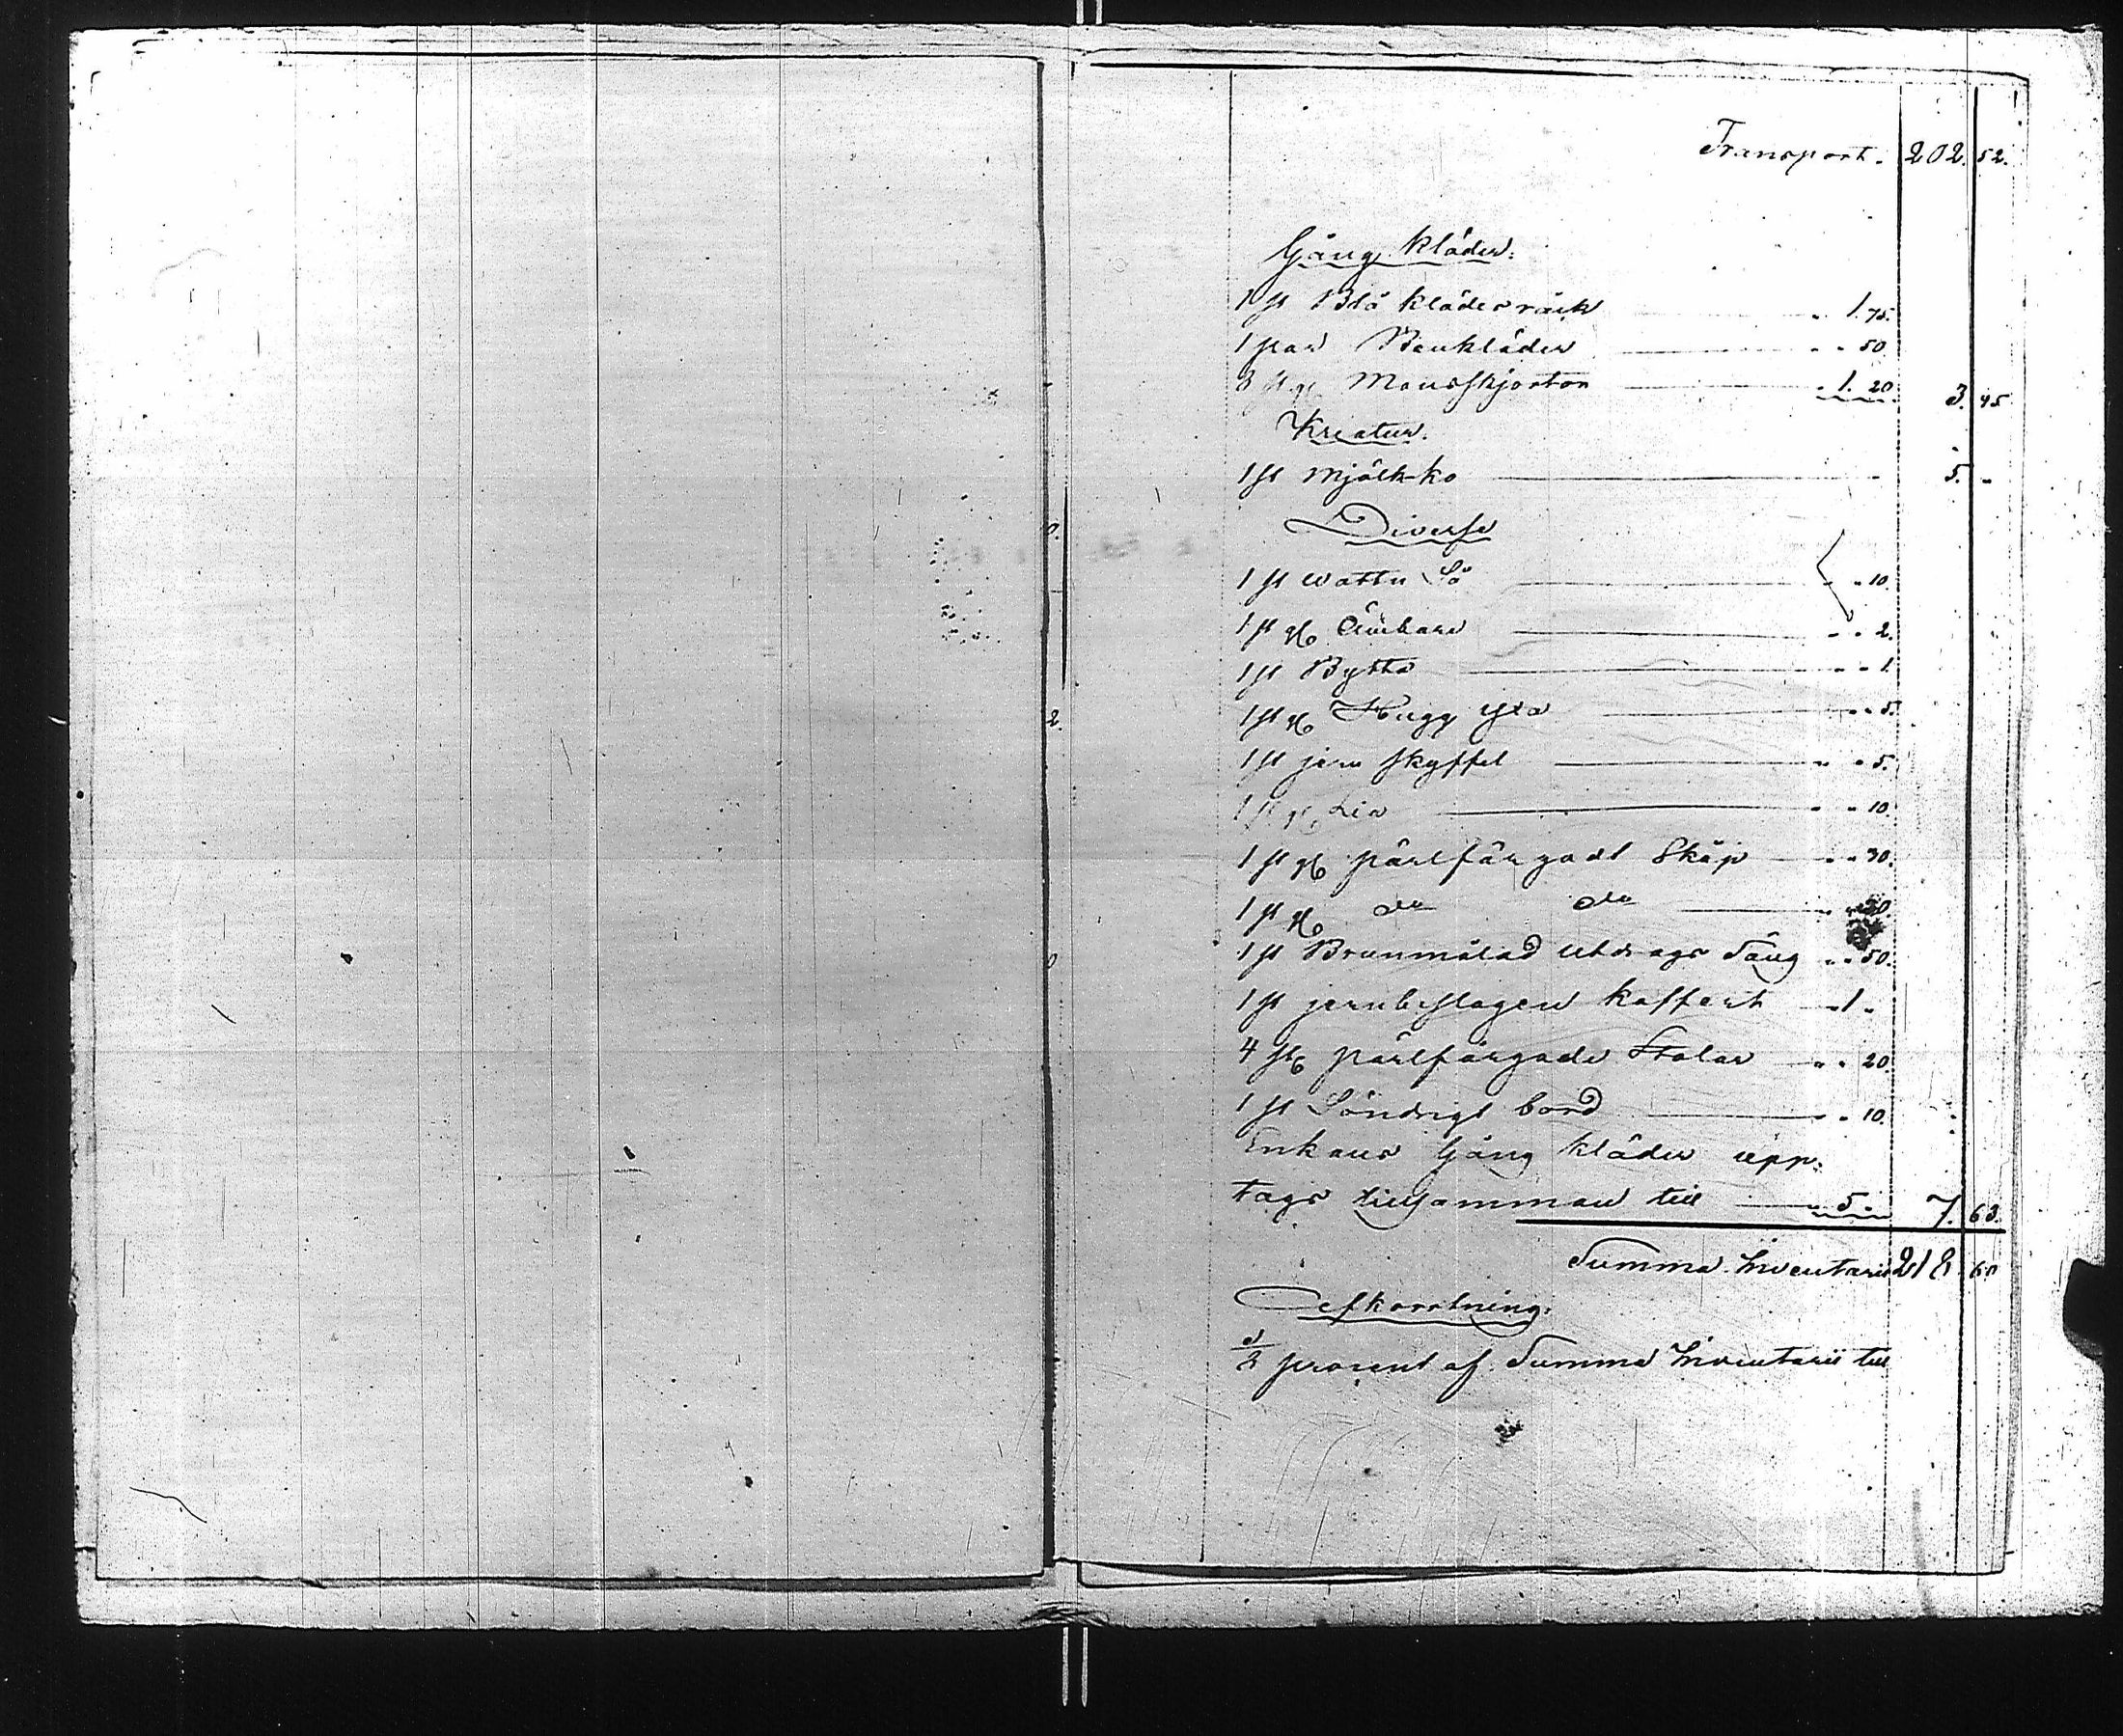 Transport. 202. 52.
Gång kläder:
1 st Blå klädesråck 1. 75.
1 par Benkläder " " 50
3 st gl Mansskjortor " 1. 20. 3. 45
Kreatur.
1 st Mjölk-ko 5. "
Diverse
1 st watten Så " " 10.
1 st gl Ämbare " " 2.
1 st Bytta " " 1
1 st gl Hugg yxa " " 5.
1 st jern skyffel " " 5.
1 st gl Lia " " 10.
1 st gl pärlfärgadt Skåp " " 30.
1 st gl do do
1 st Brunmålad Utdrags Säng " " 50.
1 st jernbeslagen koffert " 1 "
4 st gl pärlfärgade Stolar " " 20.
1 st Söndrigt bord " " 10.
Enkans Gång kläder upp-
tags tillsamman till " 5 " 7. 63.
Summa Inventarii 218 60
Afkortning.
procent af Summa Inventarii till
0.
2.
0